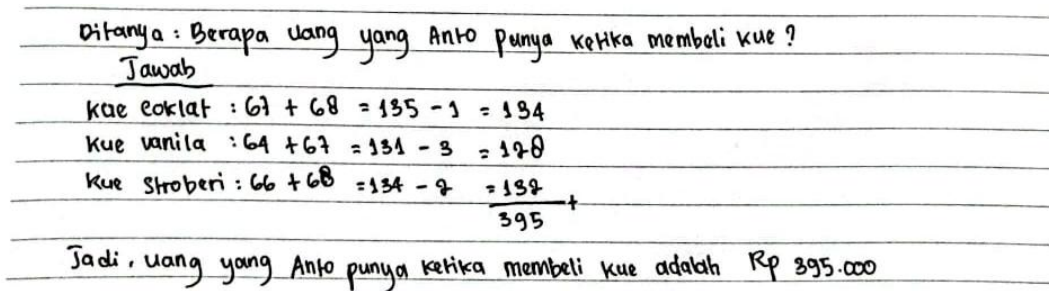 Ditanya : Berapa uang yang Anto punya ketika membeli kue ?
Jawab
Kue coklat : 67 + 68 = 135 - 1 = 134
Kue vanila : 64 + 67 = 131 - 3 = 128
Kue Stroberi : 66 + 68 = 134 - 2 = 132
395 +
Jadi, uang yang Anto punya ketika membeli kue adalah Rp 395.000